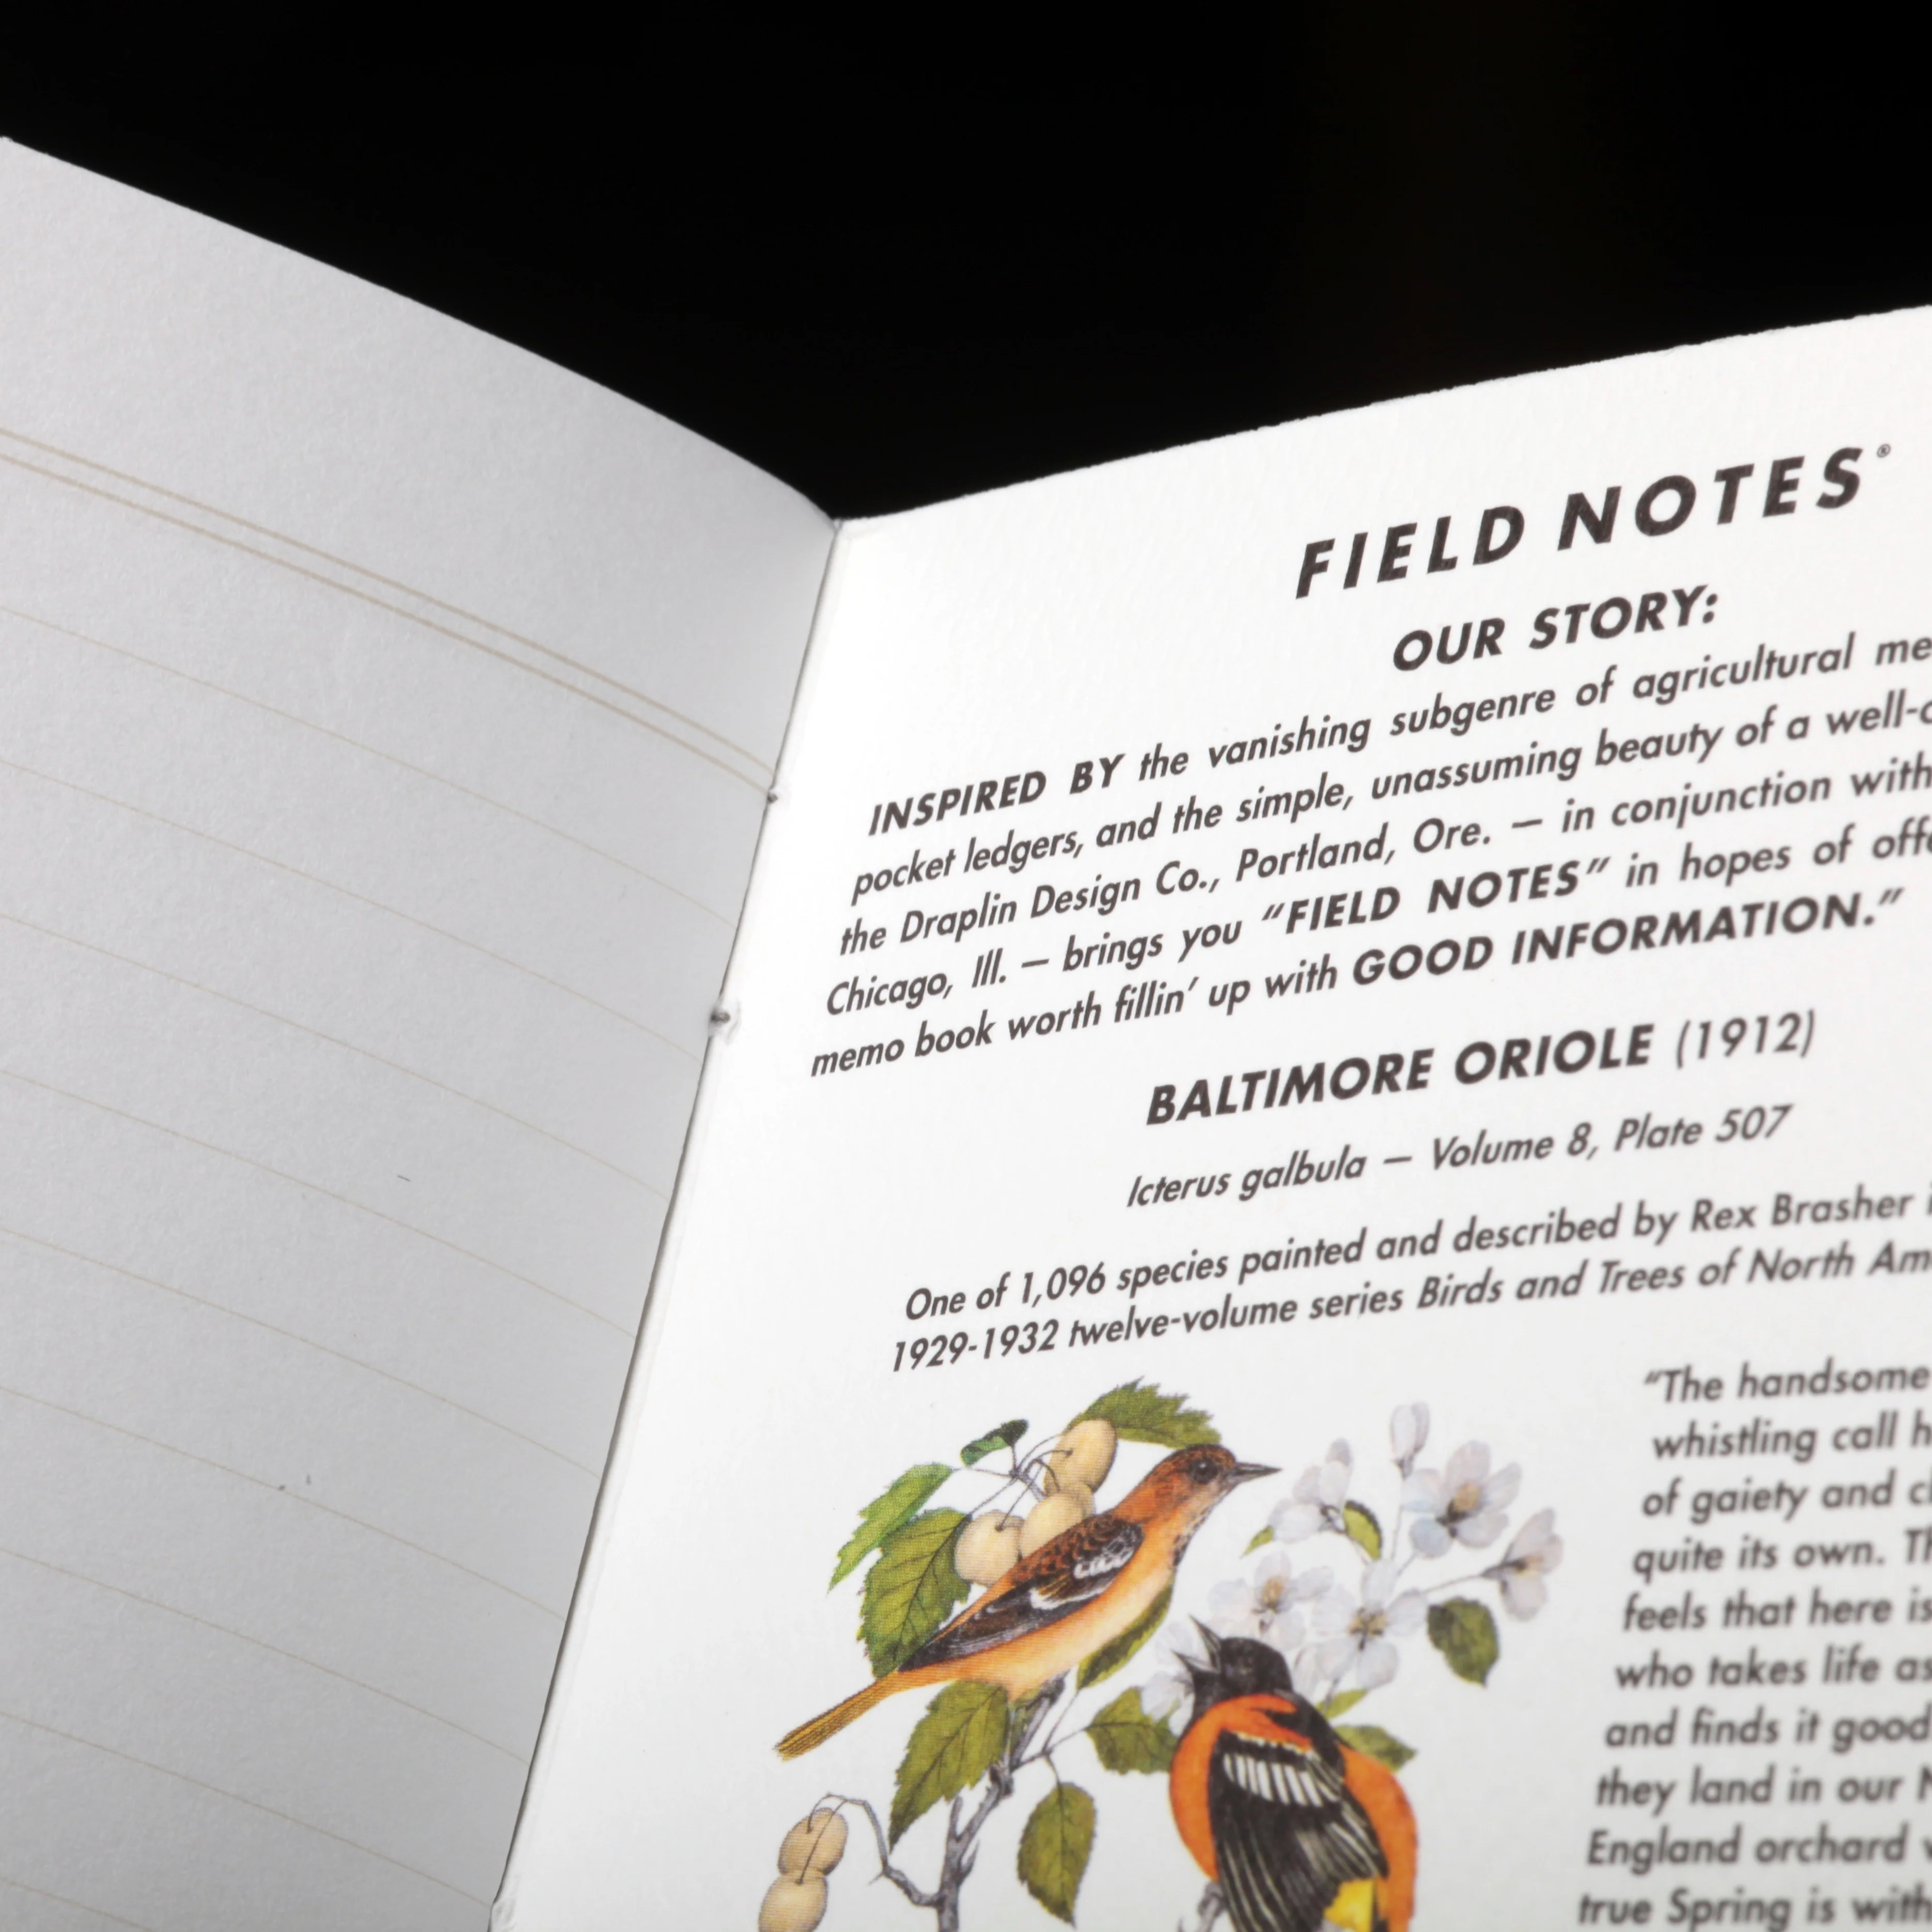 FIELD NOTES®
OUR STORY:
INSPIRED BY the vanishing subgenre of agricultural me
pocket ledgers, and the simple, unassuming beauty of a well-c
the Draplin Design Co., Portland, Ore. — in conjunction with
Chicago, Ill. — brings you “FIELD NOTES” in hopes of offe
memo book worth fillin’ up with GOOD INFORMATION.”
BALTIMORE ORIOLE (1912)
Icterus galbula — Volume 8, Plate 507
One of 1,096 species painted and described by Rex Brasher i
1929-1932 twelve-volume series Birds and Trees of North Am
“The handsome
whistling call h
of gaiety and c
quite its own. Th
feels that here is
who takes life as
and finds it good
they land in our N
England orchard
true Spring is with